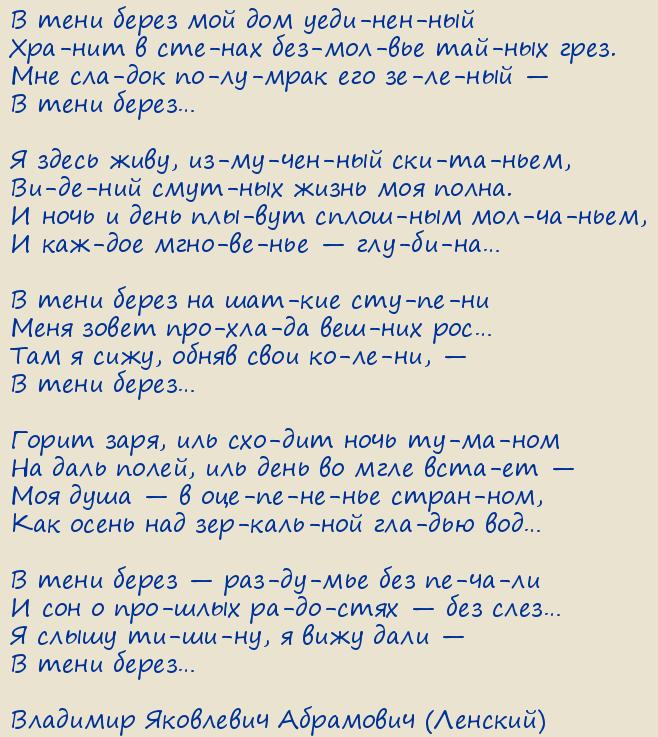 В тени берез мой дом уеди-нен-ный
Хра-нит в сте-нах без-мол-вье тай-ных грез.
Мне сла-док по-лу-мрак его зе-ле-ный —
В тени берез...

Я здесь живу, из-му-чен-ный ски-та-ньем,
Ви-де-ний смут-ных жизнь моя полна.
И ночь и день плы-вут сплош-ным мол-ча-ньем,
И каж-дое мгно-ве-нье — глу-би-на...

В тени берез на шат-кие сту-пе-ни
Меня зовет про-хла-да веш-них рос...
Там я сижу, обняв свои ко-ле-ни, —
В тени берез...

Горит заря, иль схо-дит ночь ту-ма-ном
На даль полей, иль день во мгле вста-ет —
Моя душа — в оце-пе-не-нье стран-ном,
Как осень над зер-каль-ной гла-дью вод...

В тени берез — раз-ду-мье без пе-ча-ли
И сон о про-шлых ра-до-стях — без слез...
Я слышу ти-ши-ну, я вижу дали —
В тени берез...

Владимир Яковлевич Абрамович (Ленский)